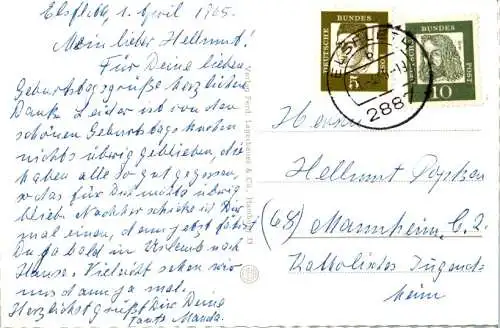 Elsfleth, 1. April 1965.
Mein lieber Hellmut!
Für Deine lieben
Geburtstagsgrüße herzlichen
Dank. Leider ist von den
schönen Geburtstags kuchen
nichts übrig geblieben, die
haben alle so gut gegessen,
so das für Dir nichts übrig
blieb. Nachher schicke ich Dir
mal einen, denn jetzt fährst
Du ja bald in Urlaub nach
Hause. Vielleicht sehen wir
uns dann ja mal.
Herzlichst grüßt Dir Deine
Tante Manda.
DEUTSCHE BUNDESPOST
DEUTSCHE BUNDESPOST
10
ELSFLETH
2887
Herrn
Hellmut
(68) Mannheim, C. 2.
Katholisches Jugend
heim